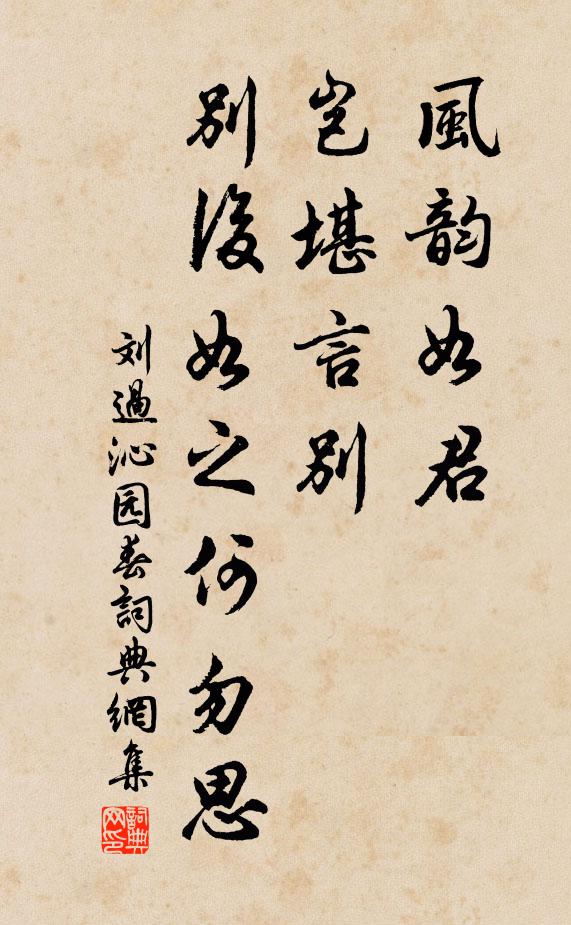 風韵如君
岂堪言别
别後如之何勿思
刘過沁园春詞典網集
詞典网印